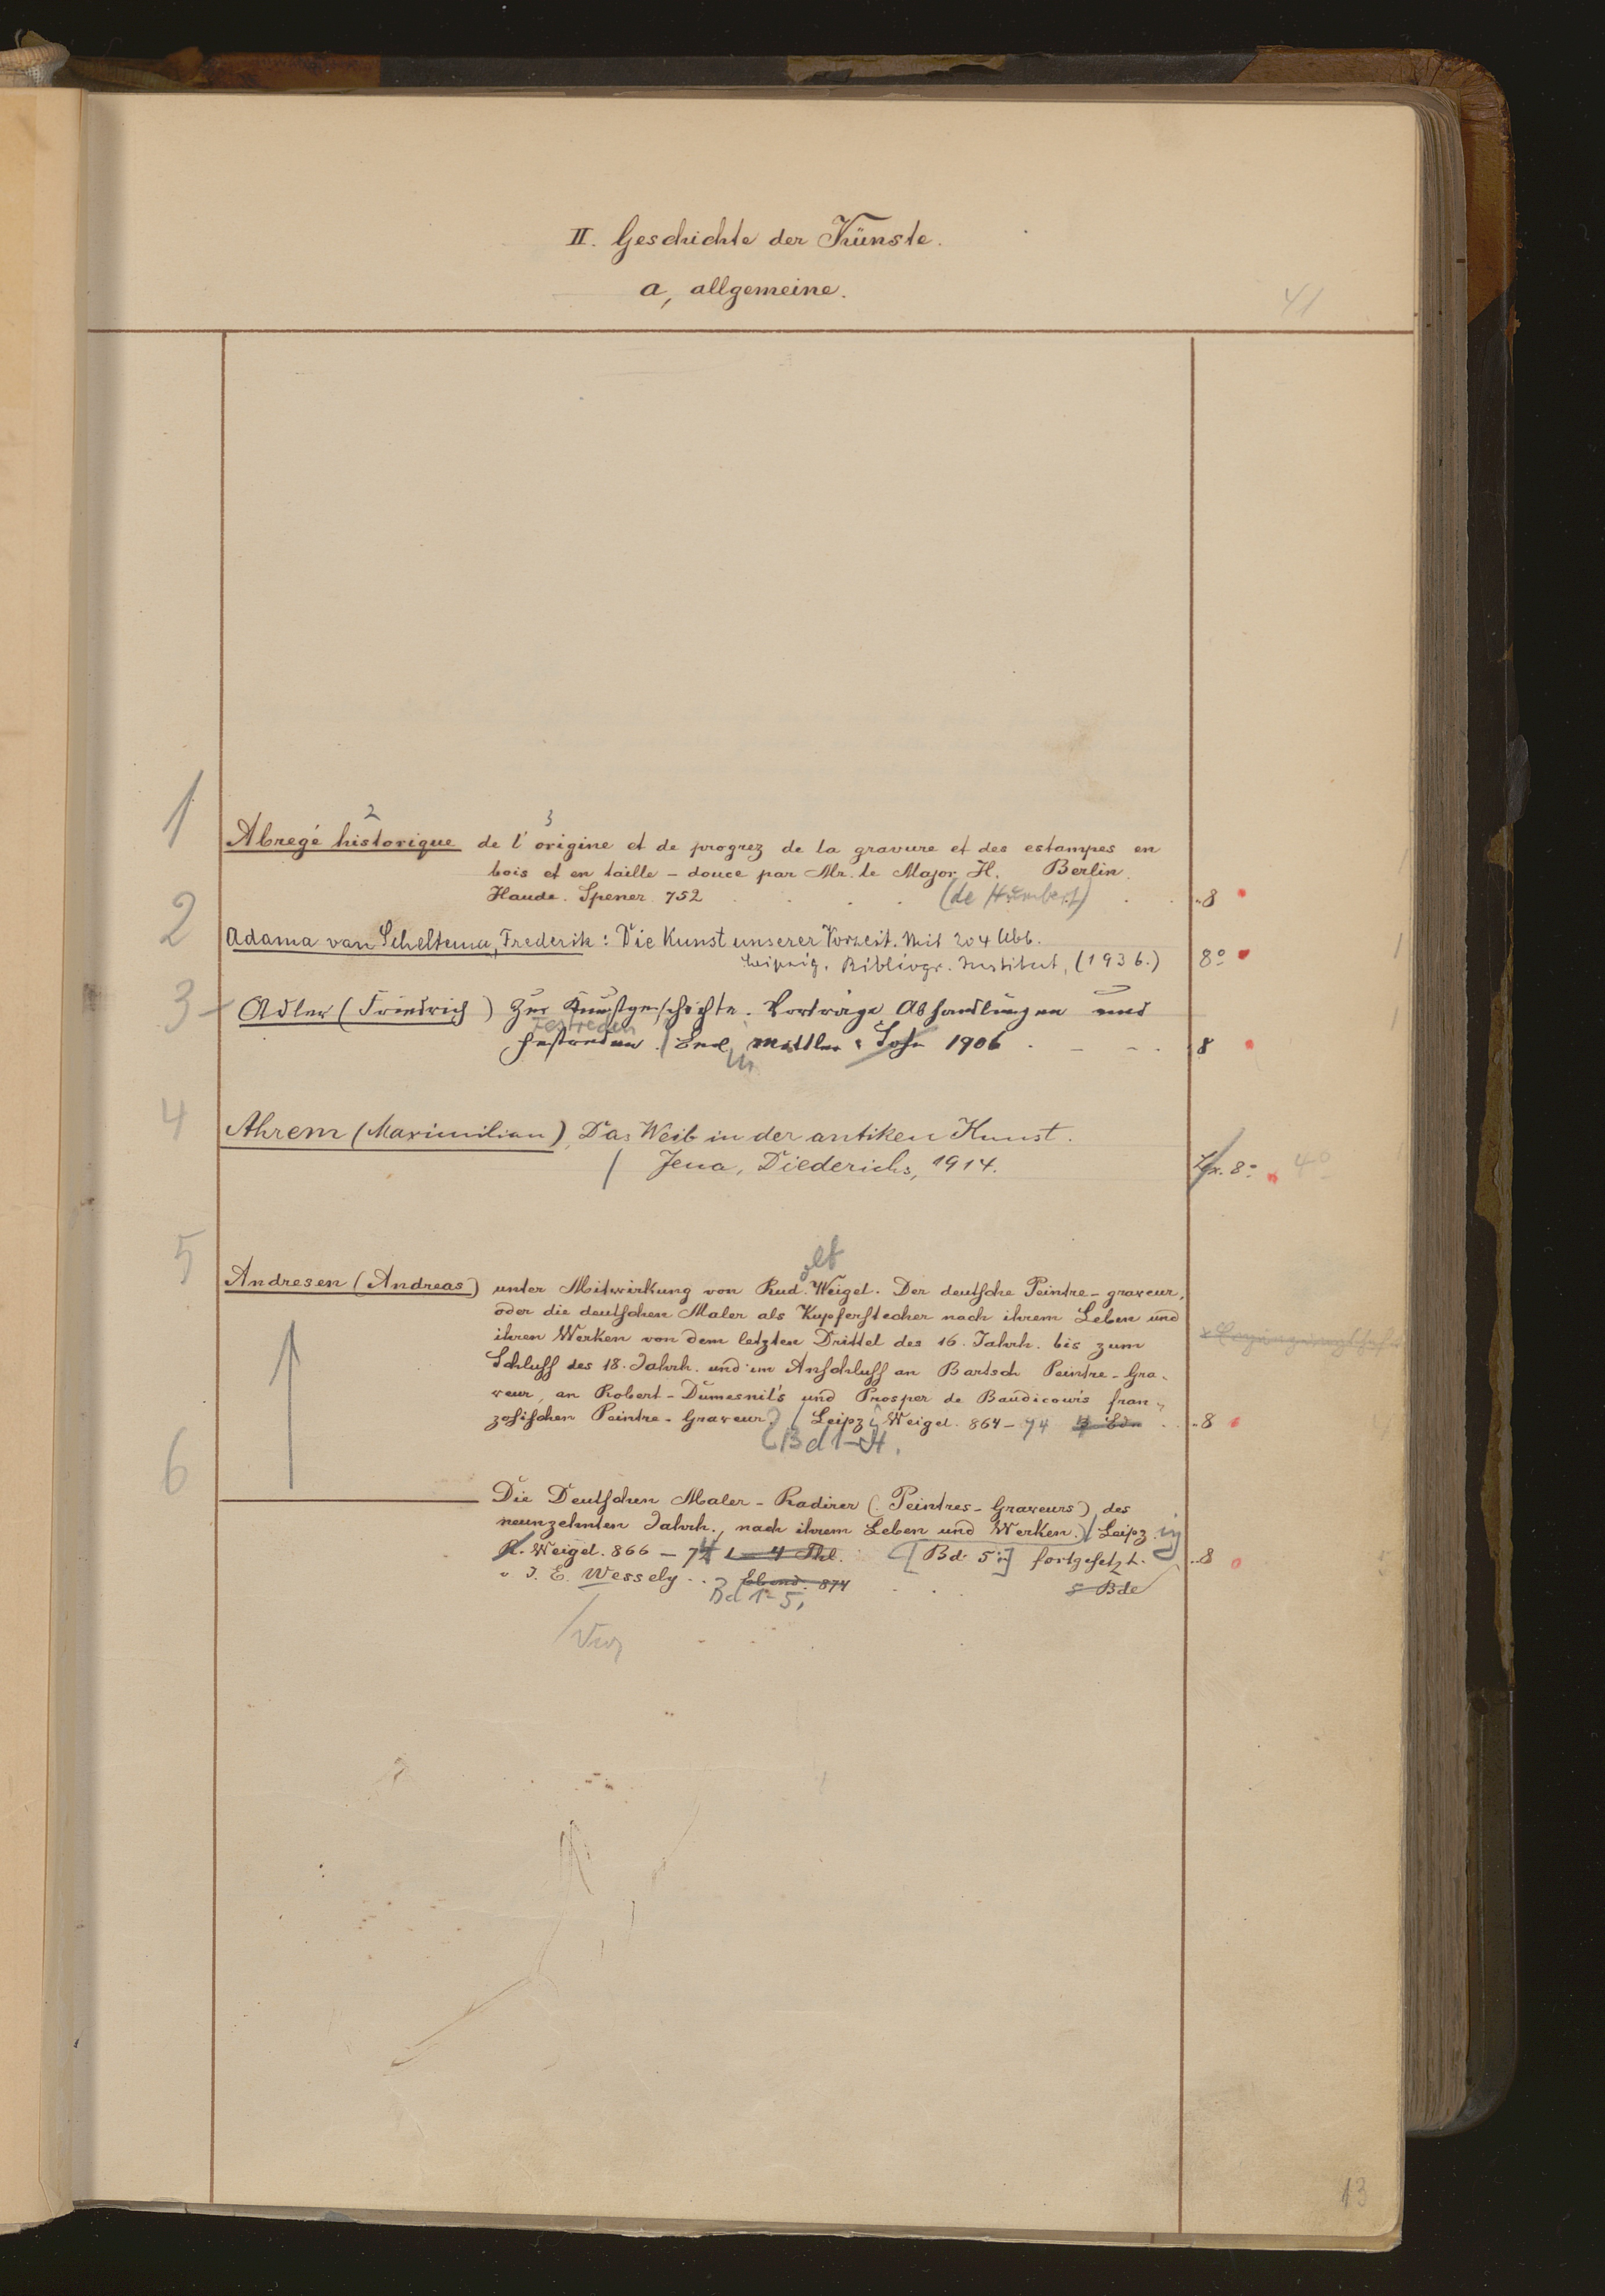 II. Geschichte der Künste.
a, allgemeine.
41
1
2 3
Abregé historique de l'origine et de progrez de la gravure et des estampes en
bois et en taille-douce par Mr. le Major H. Berlin.
Haude. Spener 752 (de Humbert) 8
2
Adama van Scheltema, Frederik: Die Kunst unserer Vorzeit. Mit 204 Abb.
Leipzig, Bibliogr. Institut, (1936.) 8º
3
Adler (Friedrich) Zur Kunstgeschichte. Vorträge Abhandlungen und
Festreden
Festreden. Berl, Mittler & Sohn 1906 8
4
Ahrem (Maximilian), Das Weib in der antiken Kunst.
Jena, Diederichs, 1914. Gr. 8º 4º
5
olf
Andresen (Andreas) unter Mitwirkung von Rud. Weigel. Der deutsche Peintre-graveur,
oder die deutschen Maler als Kupferstecher nach ihrem Leben und
ihren Werken von dem letzten Drittel des 16. Jahrh. bis zum
Schluss des 18. Jahrh. und im Anschluss an Bartsch Peintre-Gra-
veur, an Robert-Dumesnil's und Prosper de Baudicour's fran-
zosischen Peintre-Graveur. Leipz Weigel. 864-74 8
Bd 1-4.
6
Die Deutschen Maler-Radirer (Peintres-Graveurs) des
neunzehnten Jahrh., nach ihrem Leben und Werken. Leipz ig
R. Weigel. 866-74 1-4 Thl. [Bd. 5:] fortgesetzt. 8
v. J. E. Wessely .. Ebend. 874 5 Bde
Bd 1-5,
13